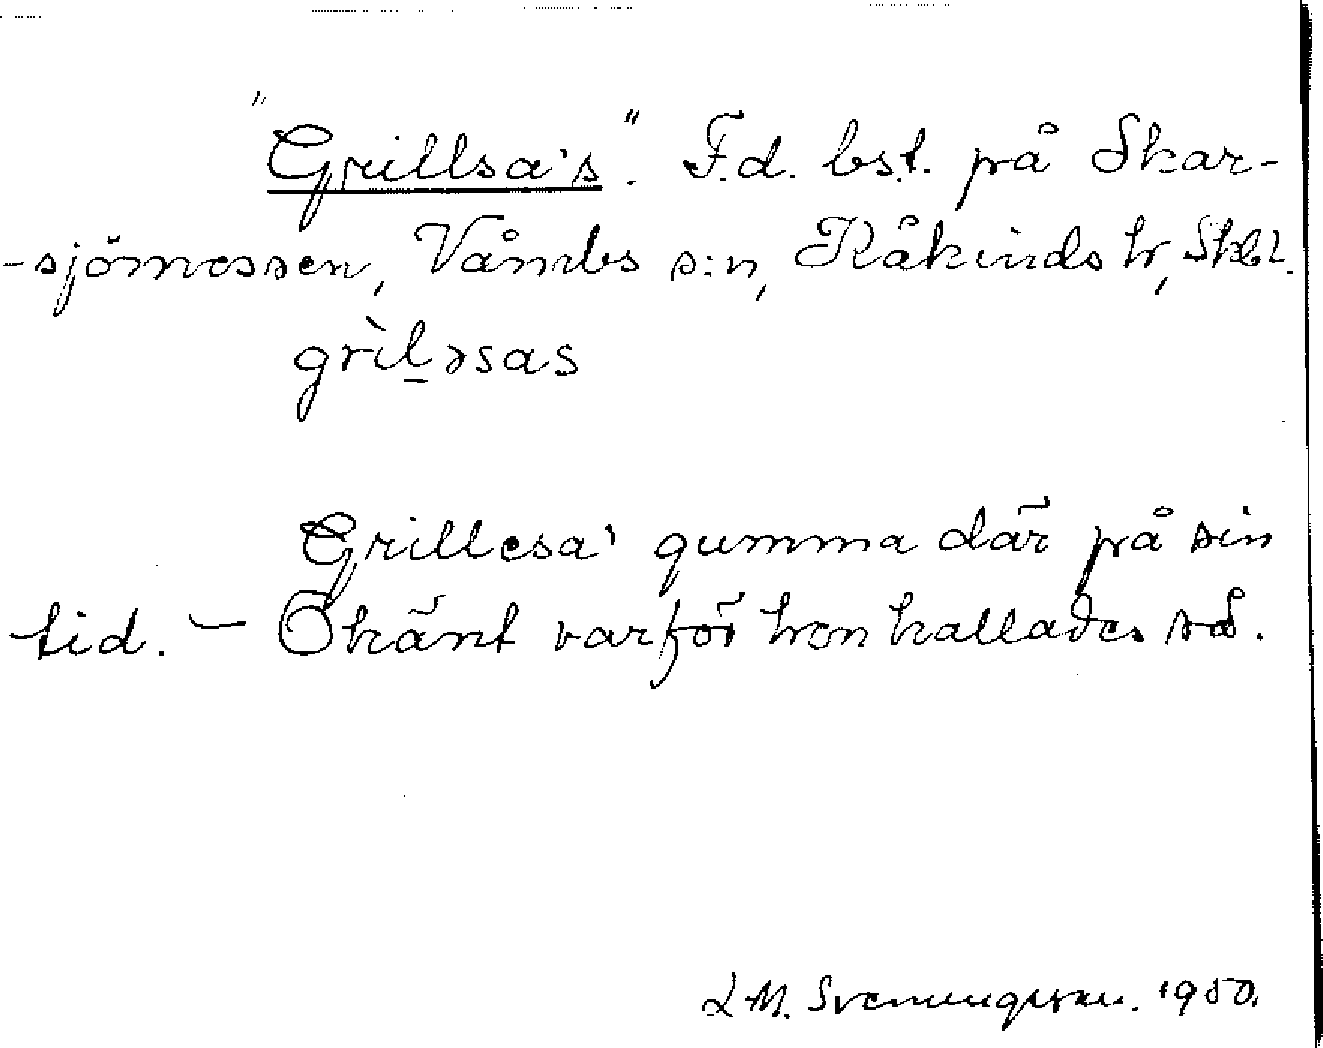 "Grillsa's". F.d. bst. på Skar-
-sjömossen, Våmbs s:n, Kåkinds hr, Skbl.
grìl̲əsas
Grillesa' gumma där på sin
tid. – Okänt varför hon kallades så.
L M. Svenungsson. 1950.